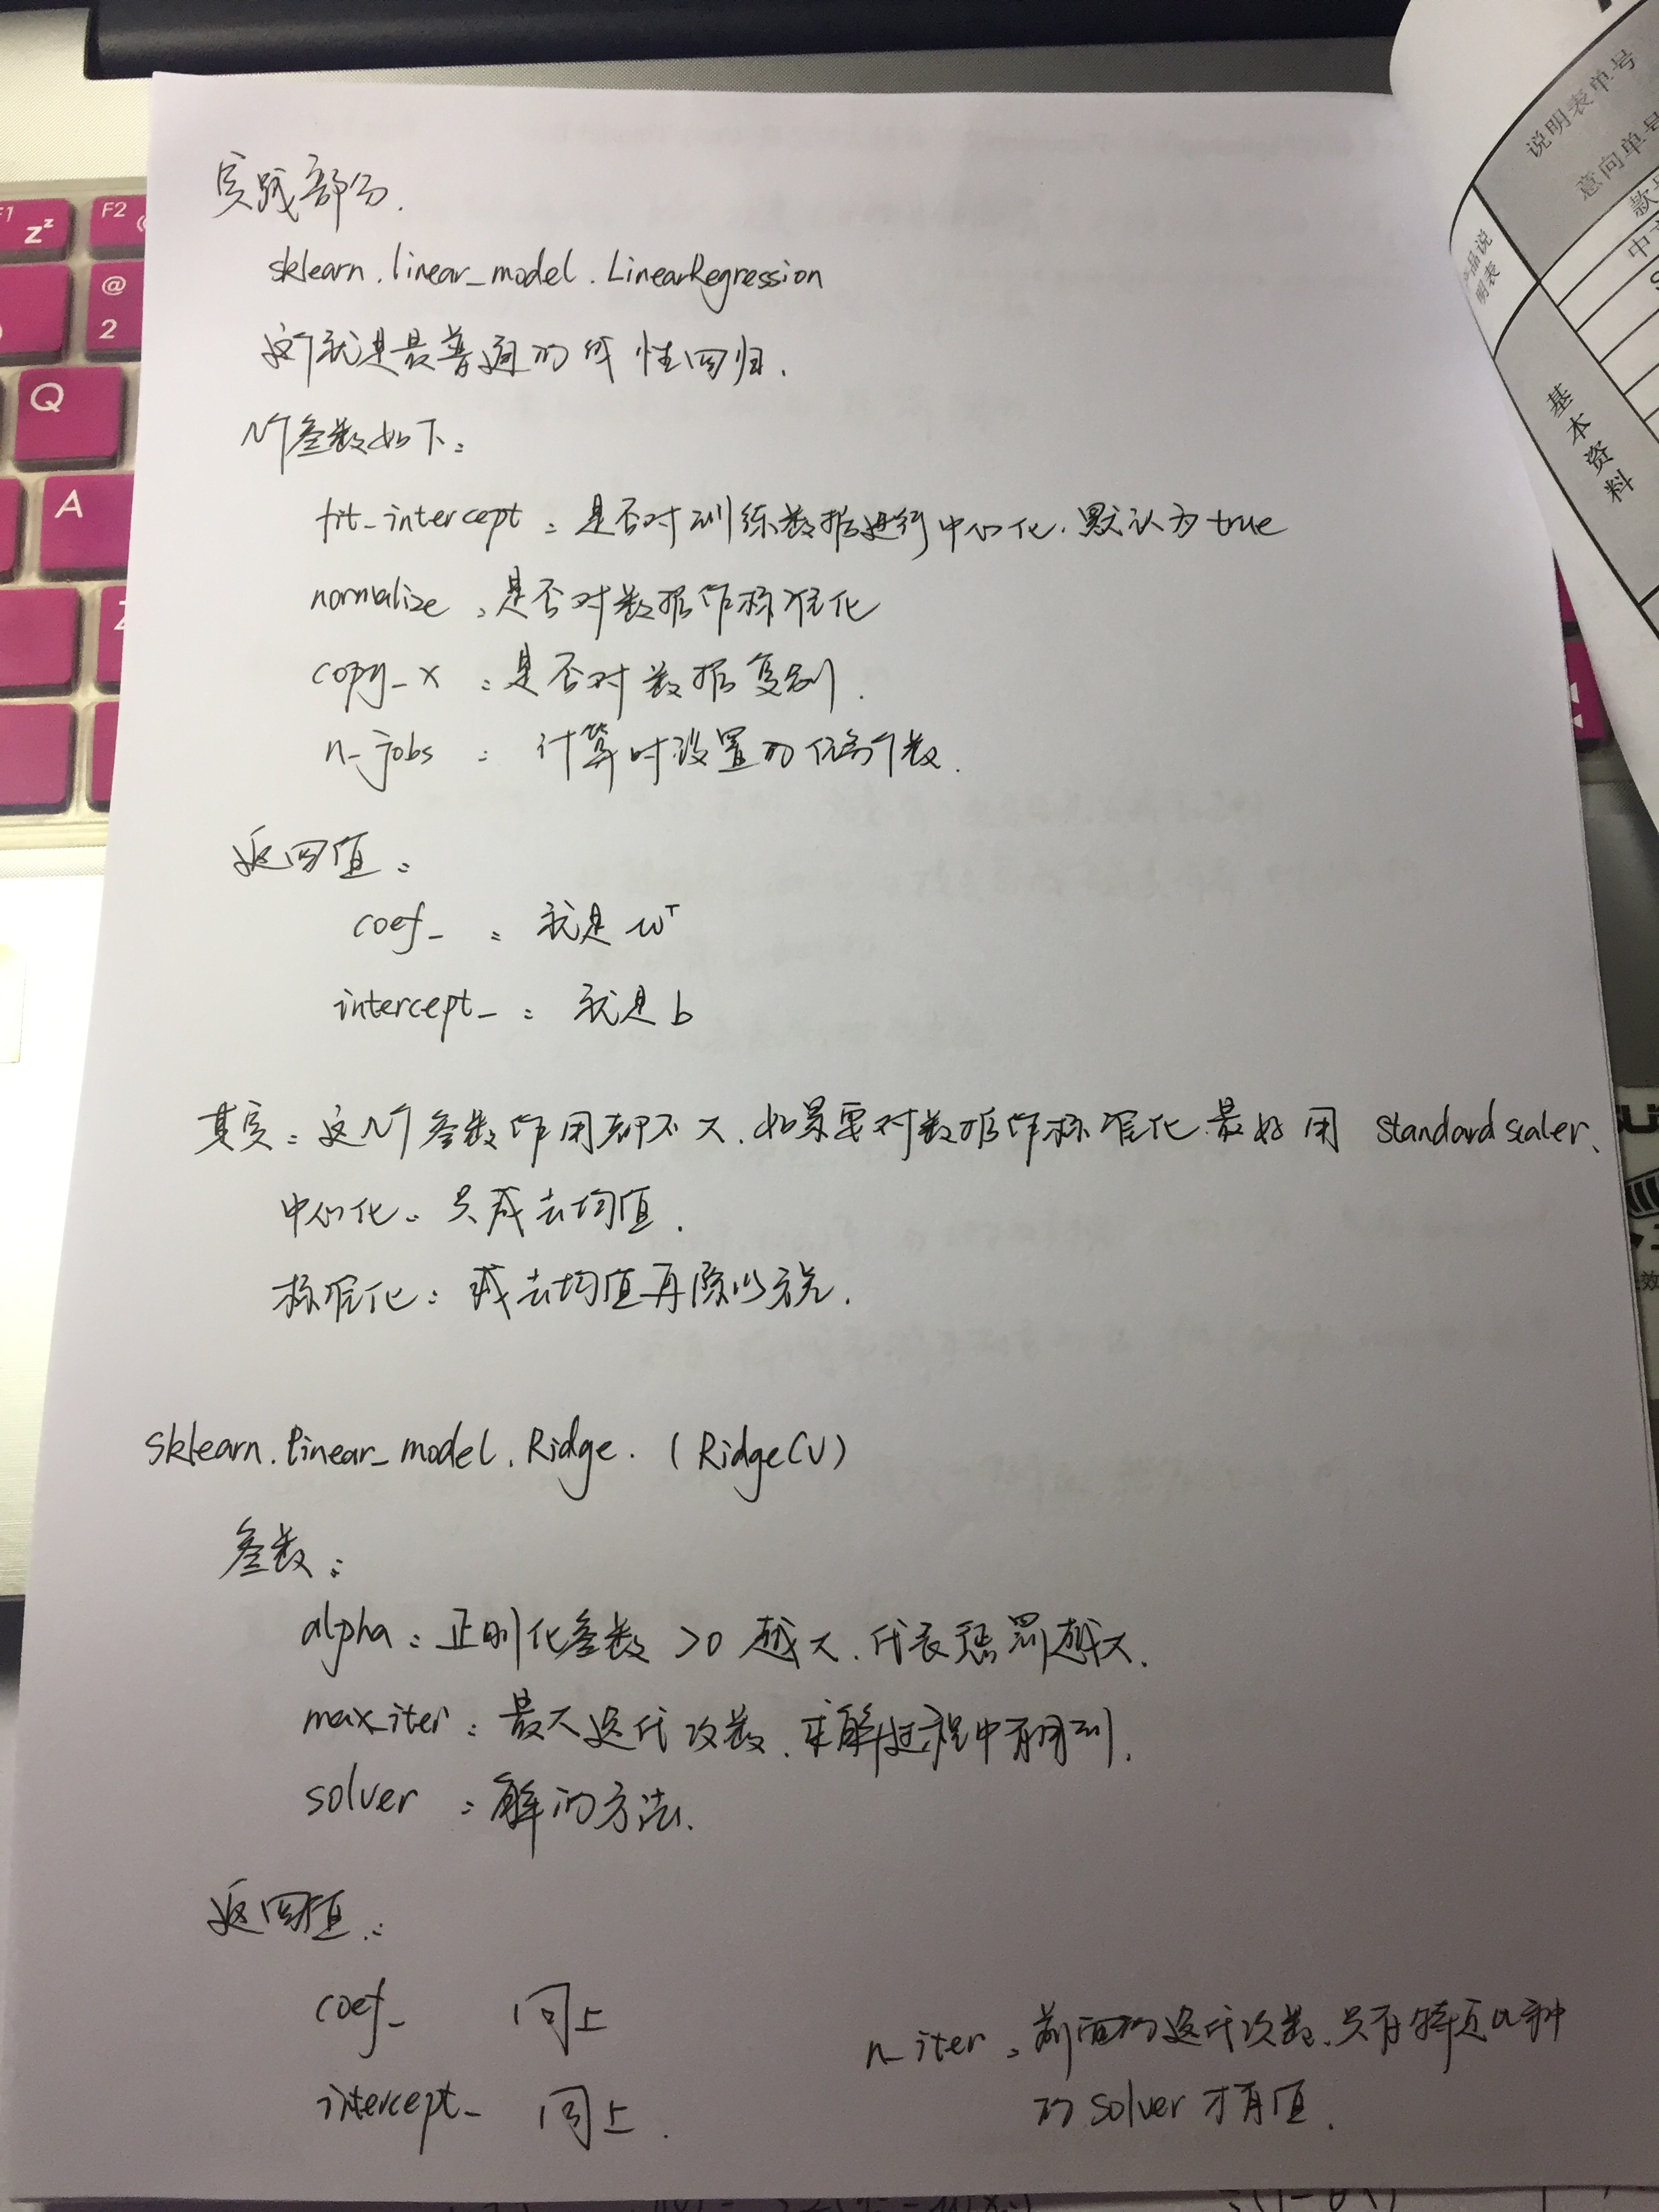 实践部分.
sklearn.linear_model.LinearRegression
这个就是最普通的线性回归.
几个参数如下:
fit_intercept:是否对训练数据进行中心化.默认为true
normalize:是否对数据作标准化
copy_x:是否对数据复制.
n_jobs:计算时设置的任务个数.
返回值:
coef_:就是wᵀ
intercept_:就是b
其实:这几个参数作用都不大.如果要对数据作标准化.最好用 Standardscaler.
中心化:只减去均值.
标准化:减去均值再除以方差.
sklearn.linear_model.Ridge.(RidgeCV)
参数:
alpha:正则化参数 >0 越大.代表惩罚越大.
max_iter:最大迭代次数.求解过程中有用到.
solver:解的方法.
返回值:
coef_ 同上
intercept_ 同上.
n_iter:前面的迭代次数.只有特定几种
的solver才有值.
F1
zᶻ
F2
@
2
Q
A
Z
说明表单号
意向单号
款号
产品说
明表
基本资料